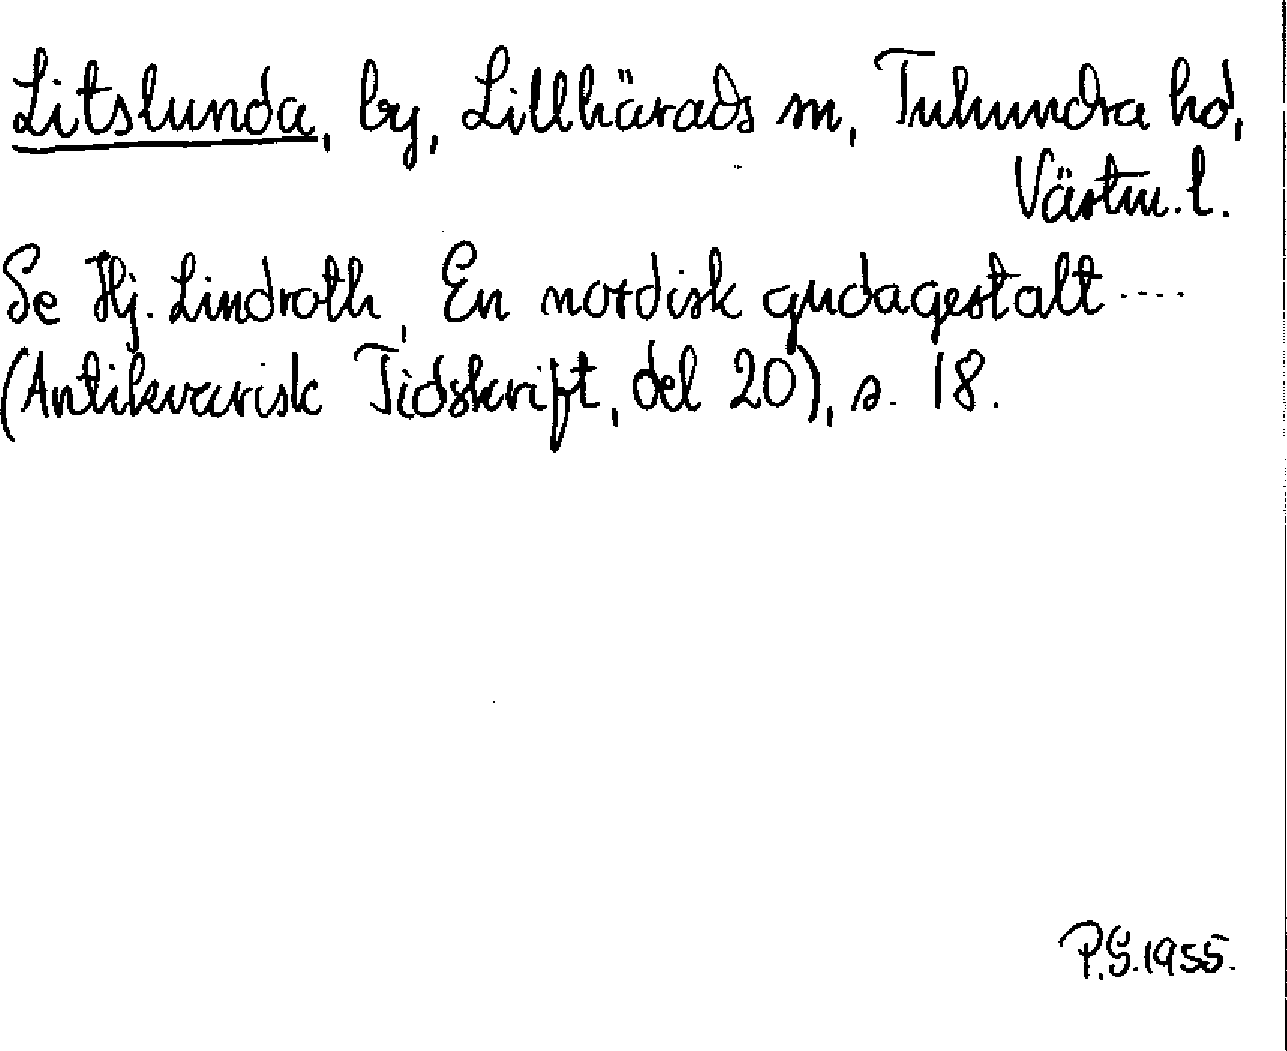 Litslunda, by, Lillhärads sn, Tuhundra hd,
Västm. l.
Se Hj. Lindroth, En nordisk gudagestalt ....
(Antikvarisk Tidskrift, del 20), s. 18.
P.G. 1955.